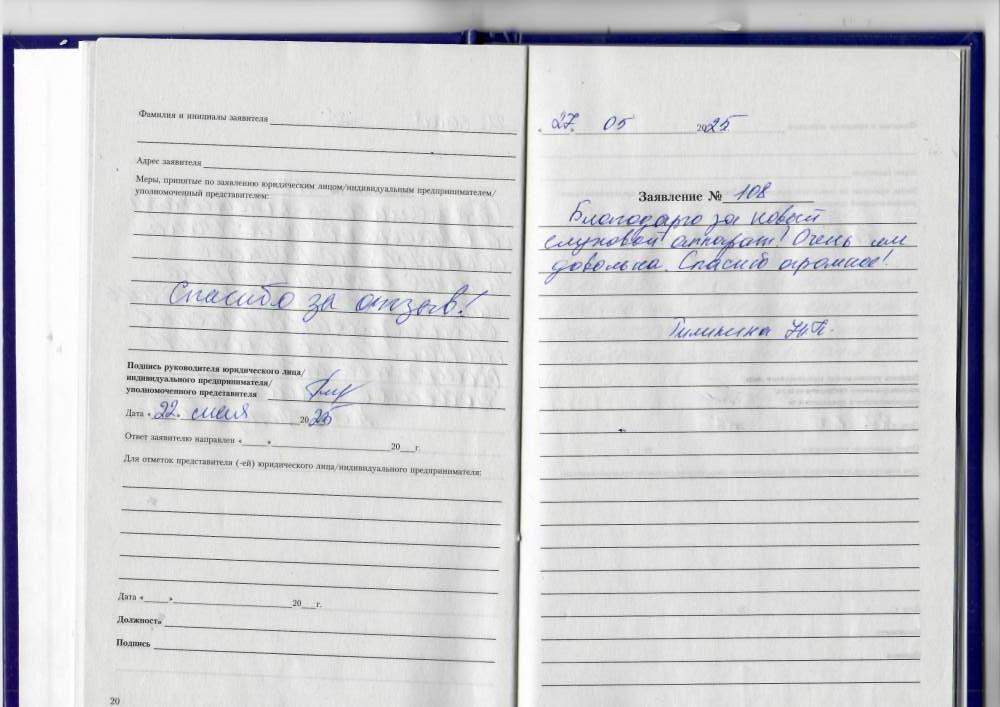 Фамилия и инициалы заявителя
Адрес заявителя
Меры, принятые по заявлению юридическим лицом/индивидуальным предпринимателем/
уполномоченный представителем:
Спасибо за отзыв!
Подпись руководителя юридического лица/
индивидуального предпринимателя/
уполномоченного представителя
Дата «22» мая 2025
Ответ заявителю направлен «____»____20__г.
Для отметок представителя (-ей) юридического лица/индивидуального предпринимателя:
Дата «____»____20__г.
Должность
Подпись
20
27. 05 2025
Заявление № 108
Благодарю за новый
слуховой аппарат! Очень им
довольна. Спасибо огромное!
Н.П.